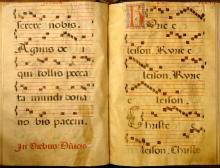 serere nobis.
Agnus de i
qui tollis pecca
ta mundi dona
no bis pacem.
In
Kyrie e
leison. Kyrie e
leison. Kyrie
e leison.
Christe e
leison. Christe